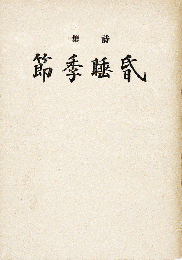 詩集
昏睡季節